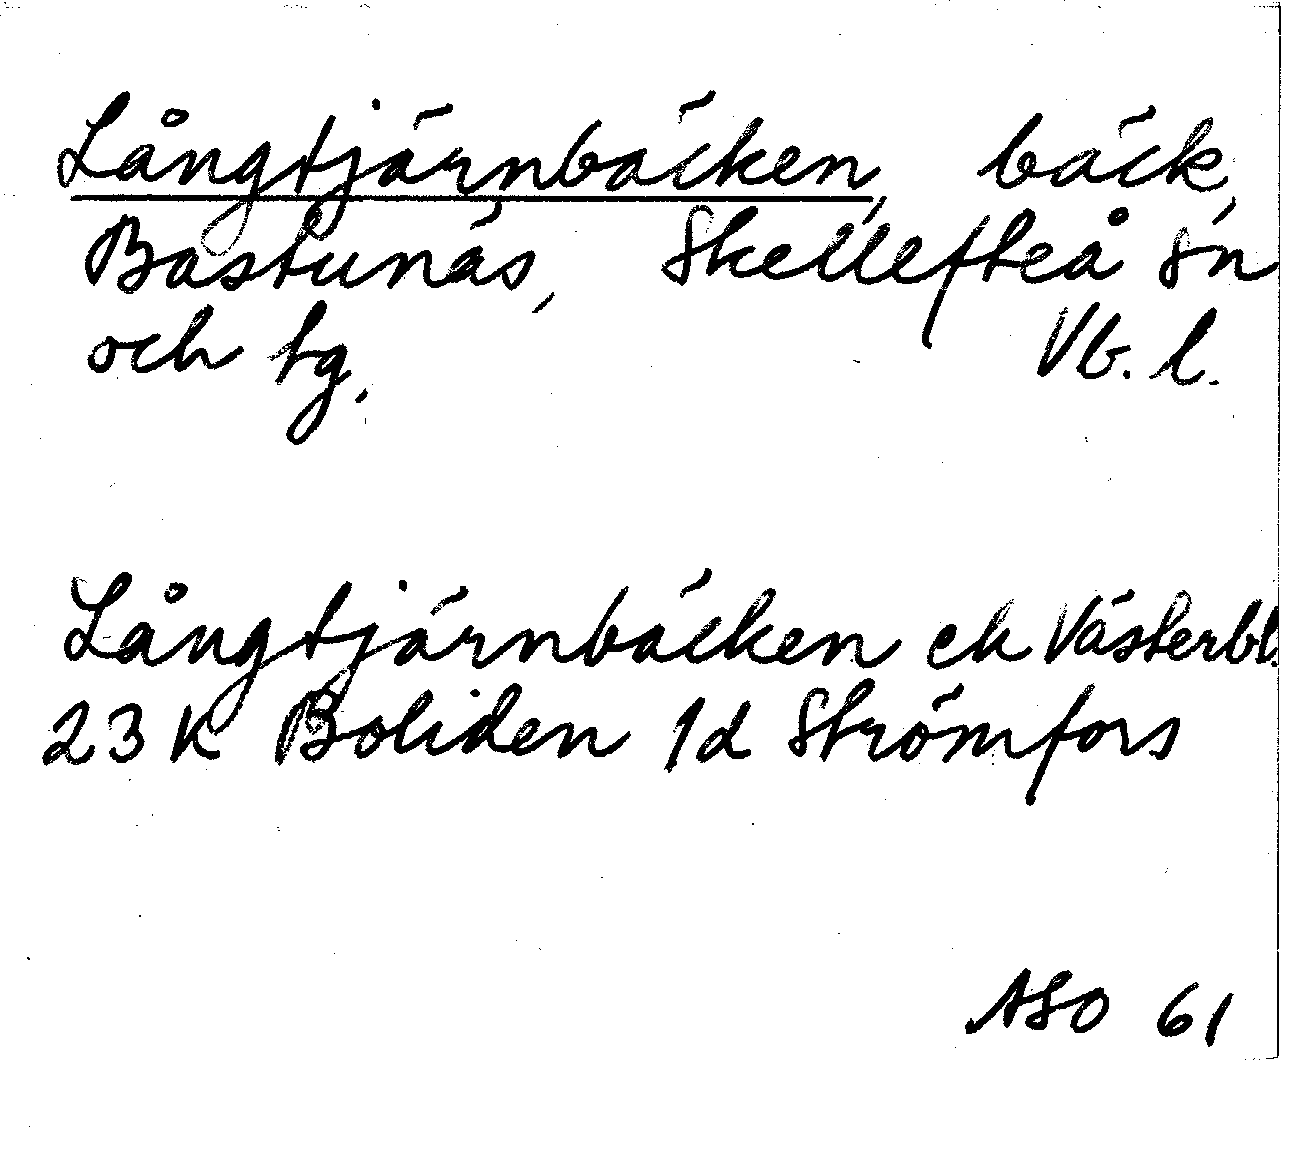 Långtjärnbäcken, bäck,
Bastunäs, Skellefteå sn
och tg. Vb. l.
Långtjärnbäcken ek Västerbt.
23 K Boliden 1d Strömfors
ASO 61